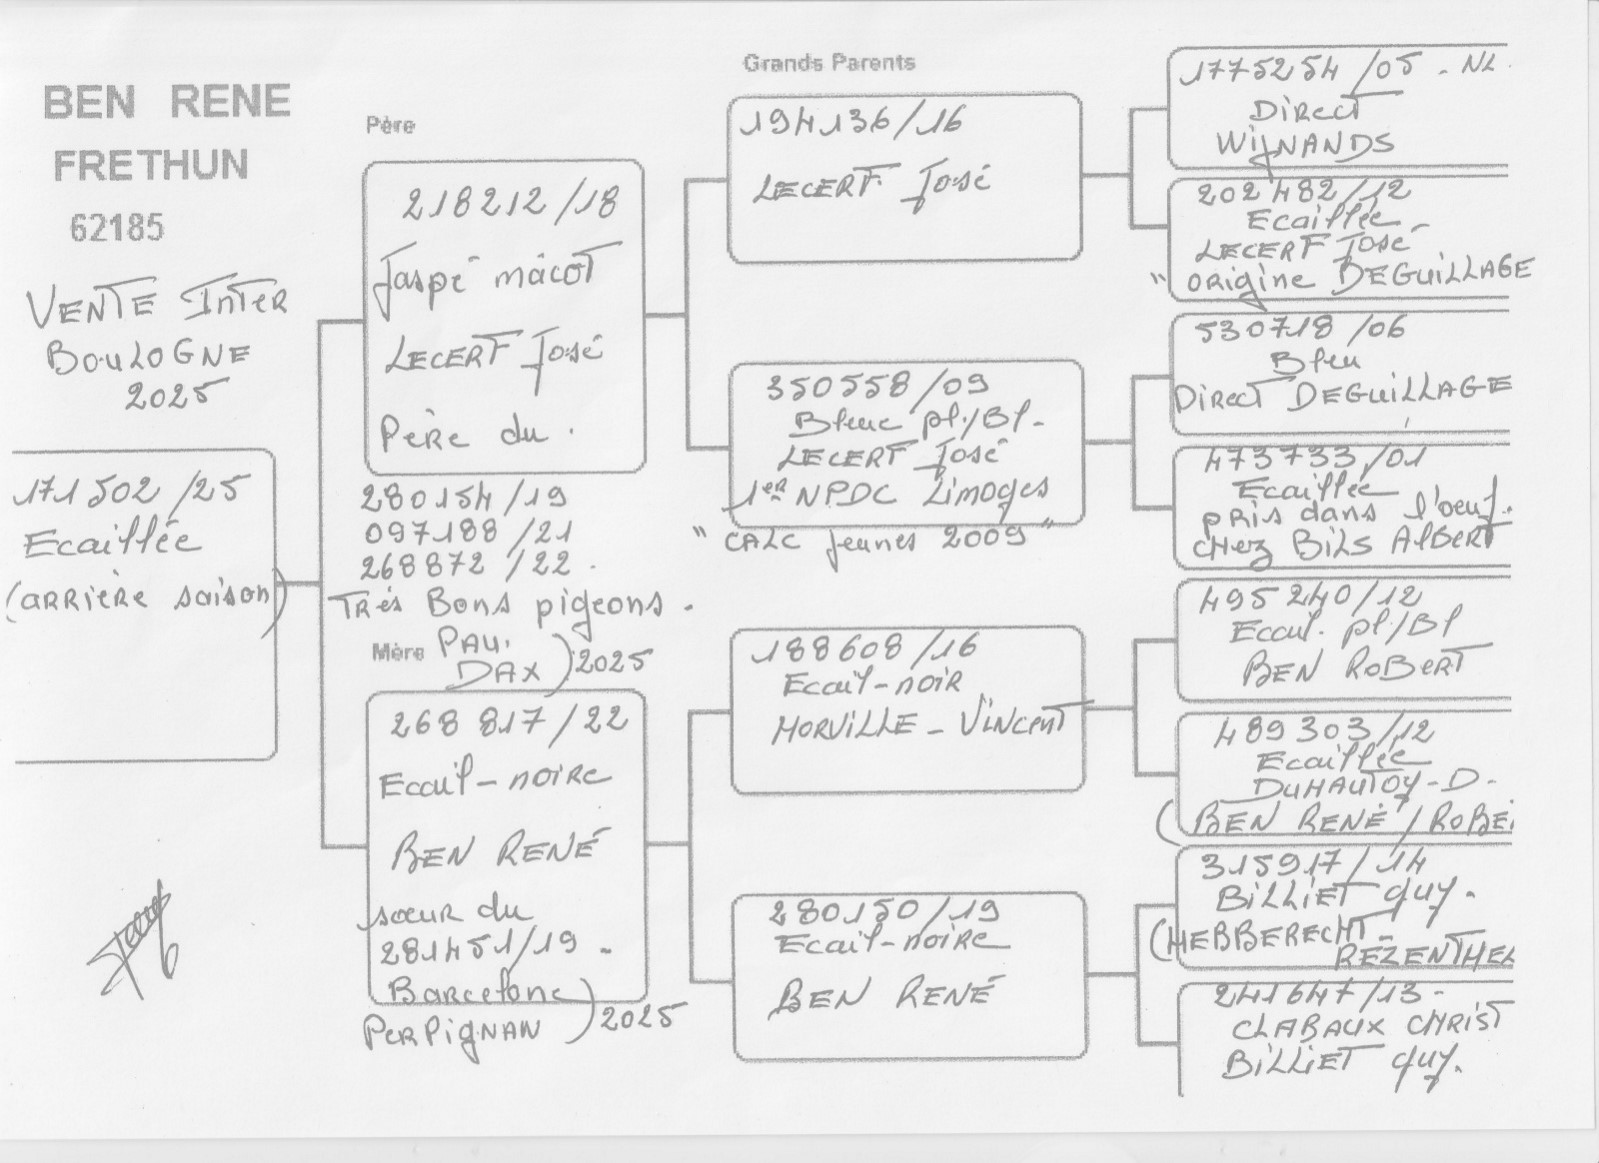 BEN RENE
FRETHUN
62185
VENTE INTER
BOULOGNE
2025
171502/25
Ecaillée
(arrière saison)
Père
218212/18
Jaspé macot
LECERF José
Père du.
280154/19
097188/21
268872/22.
Très Bons pigeons.
PAU.
DAX) 2025
Mère
268817/22
Ecail-noire
BEN RENÉ
sœur du
281451/19.
Barcelone
PERPIGNAN) 2025
Grands Parents
194136/16
LECERF José
350558/09
Bleue pl./Bl.
LECERF José
1er NPDC Limoges
" CALC jeunes 2009 "
188608/16
Ecail-noir
MORVILLE - VINCENT
280150/19
Ecail-noire
BEN RENÉ
1775254/05 - NL.
Direct
WIJNANDS
202482/12
Ecaillée
LECERF José
" origine DEGUILLAGE
530718/06
Bleu
Direct DEGUILLAGE
473733/01
Ecaillée
pris dans l'oeuf.
chez BILS AlBERT
495240/12
Ecail. pl/Bl
BEN ROBERT
489303/12
Ecaillée
DUHAUTOY-D-
(BEN RENÉ / ROBE
315917/14
BILLIET guy.
(HEBBERECHT-
REZENTHEL
241647/13-
CLABAUX CHRIST
BILLIET guy.